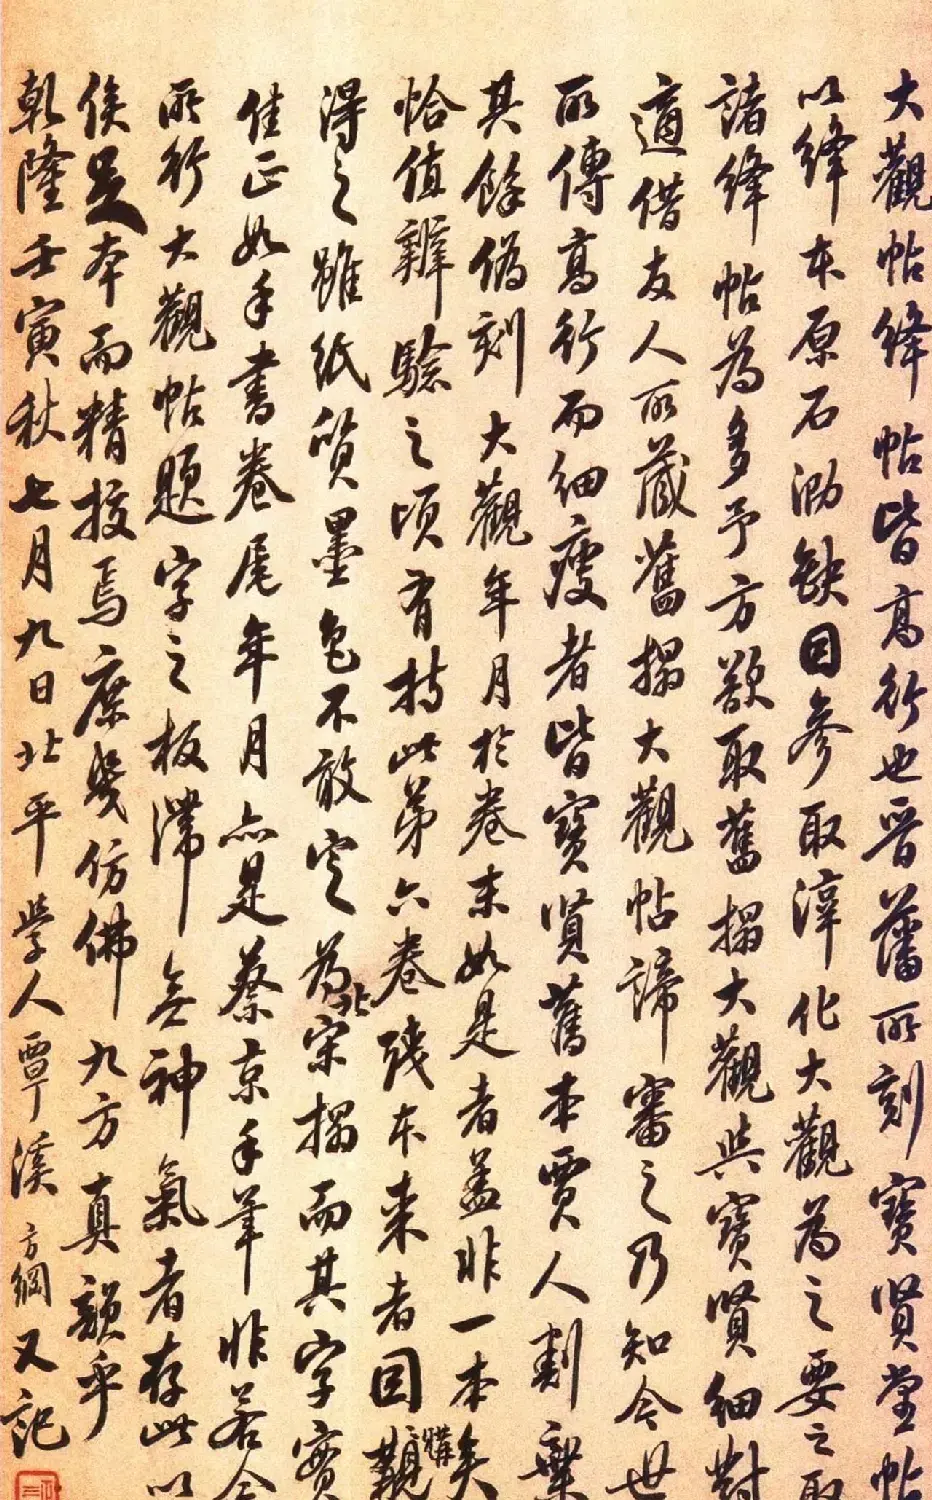 大觀帖絳帖皆高行也晉藩所刻寶賢堂帖
以絳本原石泐缺因參取淳化大觀為之要之取
諸絳帖為多予方欲取舊搨大觀與寶賢細對
適借友人所藏舊搨大觀帖諦審之乃知今世
所傳高行而細瘦者皆寶賢舊本賈人劃棄
其餘偽刻大觀年月於卷末如是者蓋非一本矣
恰值辨驗之頃有持此第六卷殘本來者因購
得之雖紙質墨色不敢定為北宋搨而其字實
佳正如手書卷尾年月亦是蔡京手筆非若今
所行大觀帖題字之板滯無神氣者存此以
俟足本而精挍焉庶幾仿佛九方真韻乎
乾隆壬寅秋七月九日北平學人覃溪方綱又記